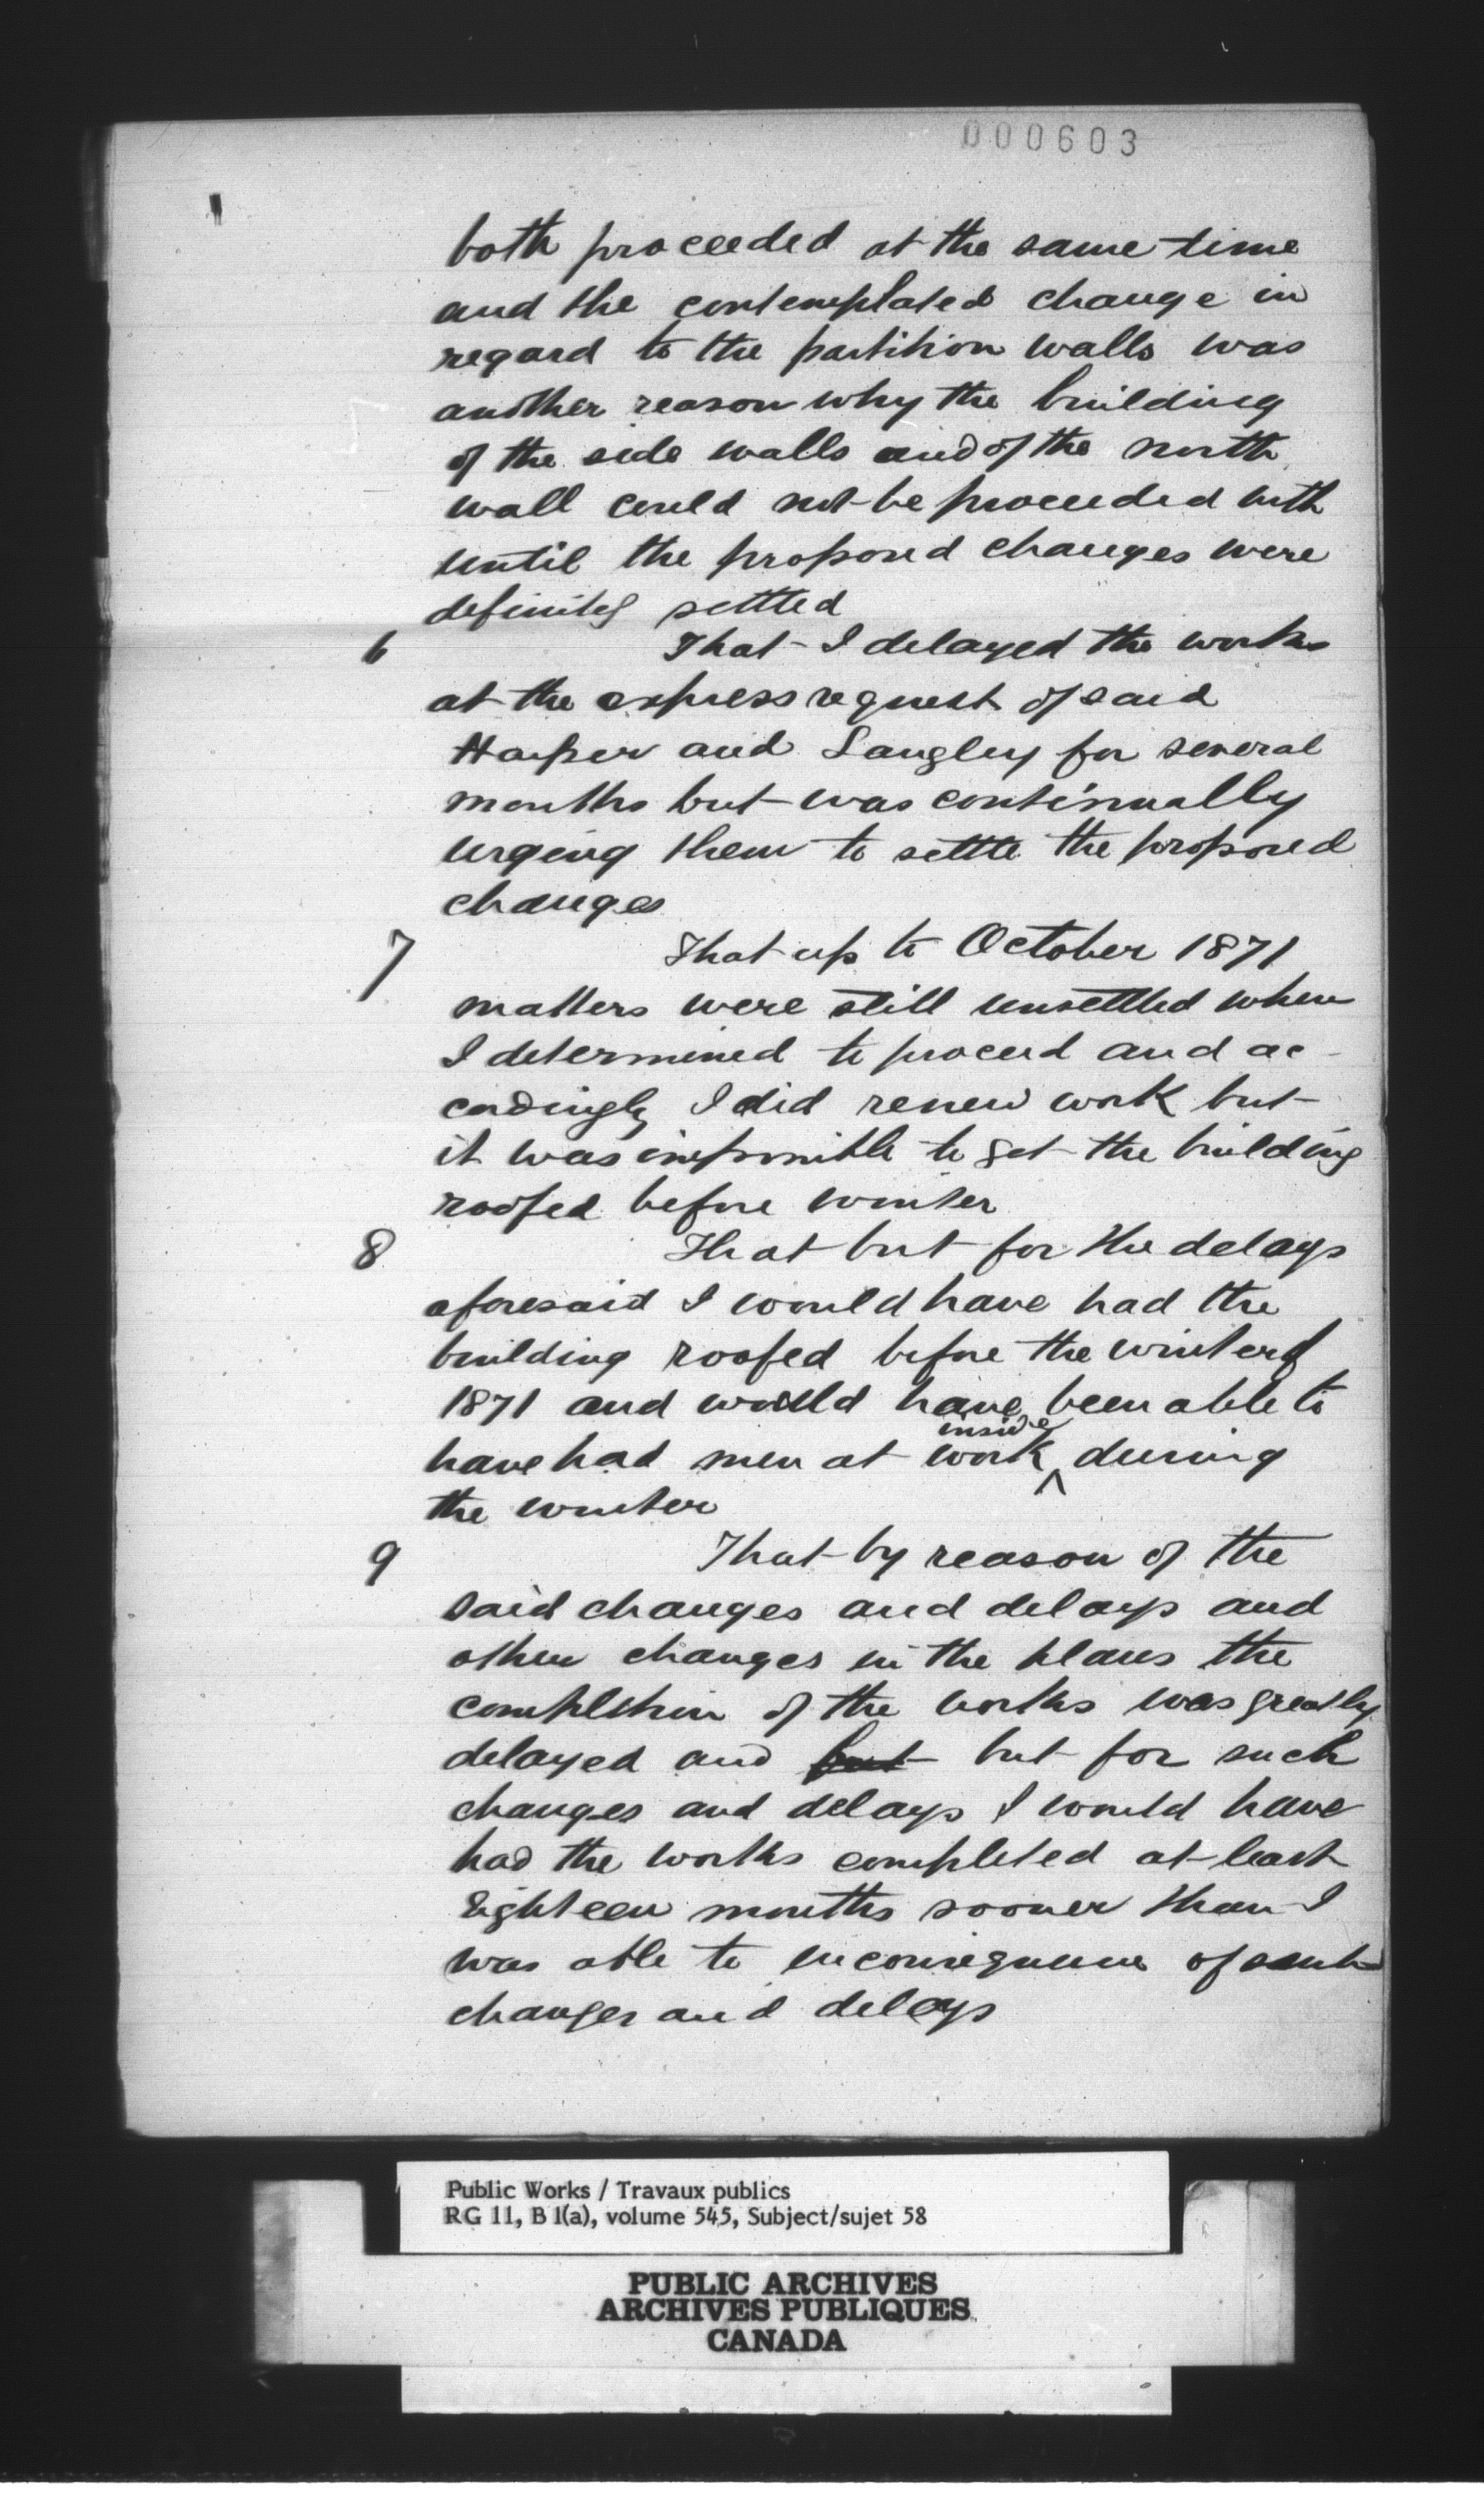 000603
both proceeded at the same time
and the contemplated change in
regard to the partition walls was
another reason why the building
of the side walls and of the north
wall could not be proceeded with
until the proposed changes were
definitely settled
6 That I delayed the works
at the express request of said
Harper and Langley for several
months but was continually
urging them to settle the proposed
changes
7 That up to October 1871
matters were still unsettled when
I determined to proceed and ac-
cordingly I did renew work but
it was impossible to get the building
roofed before winter
8 That but for the delays
aforesaid I would have had the
building roofed before the winter of
1871 and would have been able to
inside
have had men at work ^ during
the winter
9 That by reason of the
said changes and delays and
other changes in the plans the
completion of the works was greatly
delayed and but but for such
changes and delays I would have
had the works completed at least
Eighteen months sooner than I
was able to in consequence of such
changes and delays
Public Works / Travaux publics
RG 11, B 1(a), volume 545, Subject/sujet 58
PUBLIC ARCHIVES
ARCHIVES PUBLIQUES
CANADA